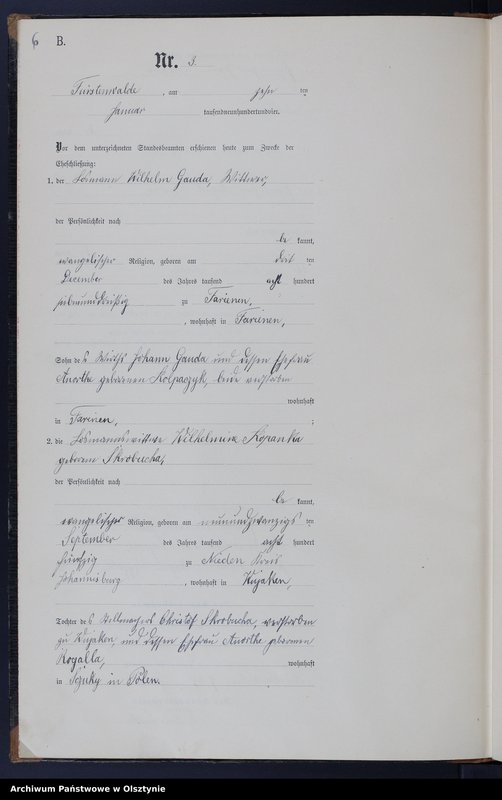 6 B.
Nr. 3.
Fürstenwalde, am zehn ten
Januar tausendneunhundertundvier.
Vor dem unterzeichneten Standesbeamten erschienen heute zum Zwecke der
Eheschließung:
1. der Losmann Wilhelm Gauda, Wittwer,
der Persönlichkeit nach
be kannt,
evangelischer Religion, geboren am drit ten
December des Jahres tausend acht hundert
siebenunddreißig zu Farienen,
, wohnhaft in Farienen,
Sohn des Wirths Johann Gauda und dessen Ehefrau
Anorthe geborenen Kolpaczyk, beide verstorben
wohnhaft
in Farienen,
;
2. die Losmannswittwe Wilhelmine Kopanka
geborene Skrobucha,
der Persönlichkeit nach
be kannt,
evangelischer Religion, geboren am neunundzwanzigs ten
September des Jahres tausend acht hundert
fünfzig zu Nieden Kreis
Johannisburg, wohnhaft in Kujaken,
Tochter des Stellmachers Christof Skrobucha, verstorben
zu Kujaken, und dessen Ehefrau Anorthe geborenen
Rogalla, wohnhaft
in in Polen.
Archiwum Państwowe w Olsztynie